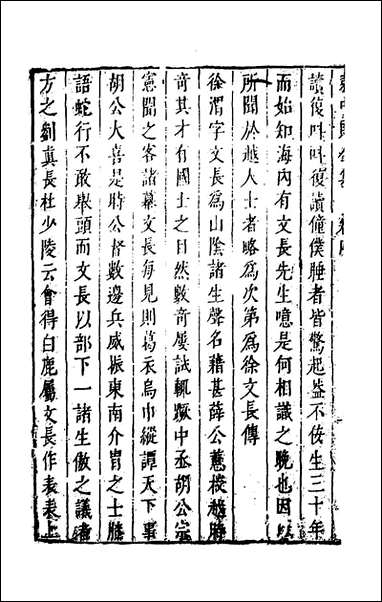 讀復叫叫復讀僮僕睡者皆驚起蓋不佞生三十年
而始知海內有文長先生噫是何相識之晚也因以
所聞於越人士者略為次第為徐文長傳
徐渭字文長為山陰諸生聲名藉甚薛公蕙校越時
奇其才有國士之目然數奇屢試輒蹶中丞胡公宗
憲聞之客諸幕文長每見則葛衣烏巾縱譚天下事
胡公大喜是時公督數邊兵威振東南介冑之士膝
語蛇行不敢舉頭而文長以部下一諸生傲之議者
方之劉真長杜少陵云會得白鹿屬文長作表表上